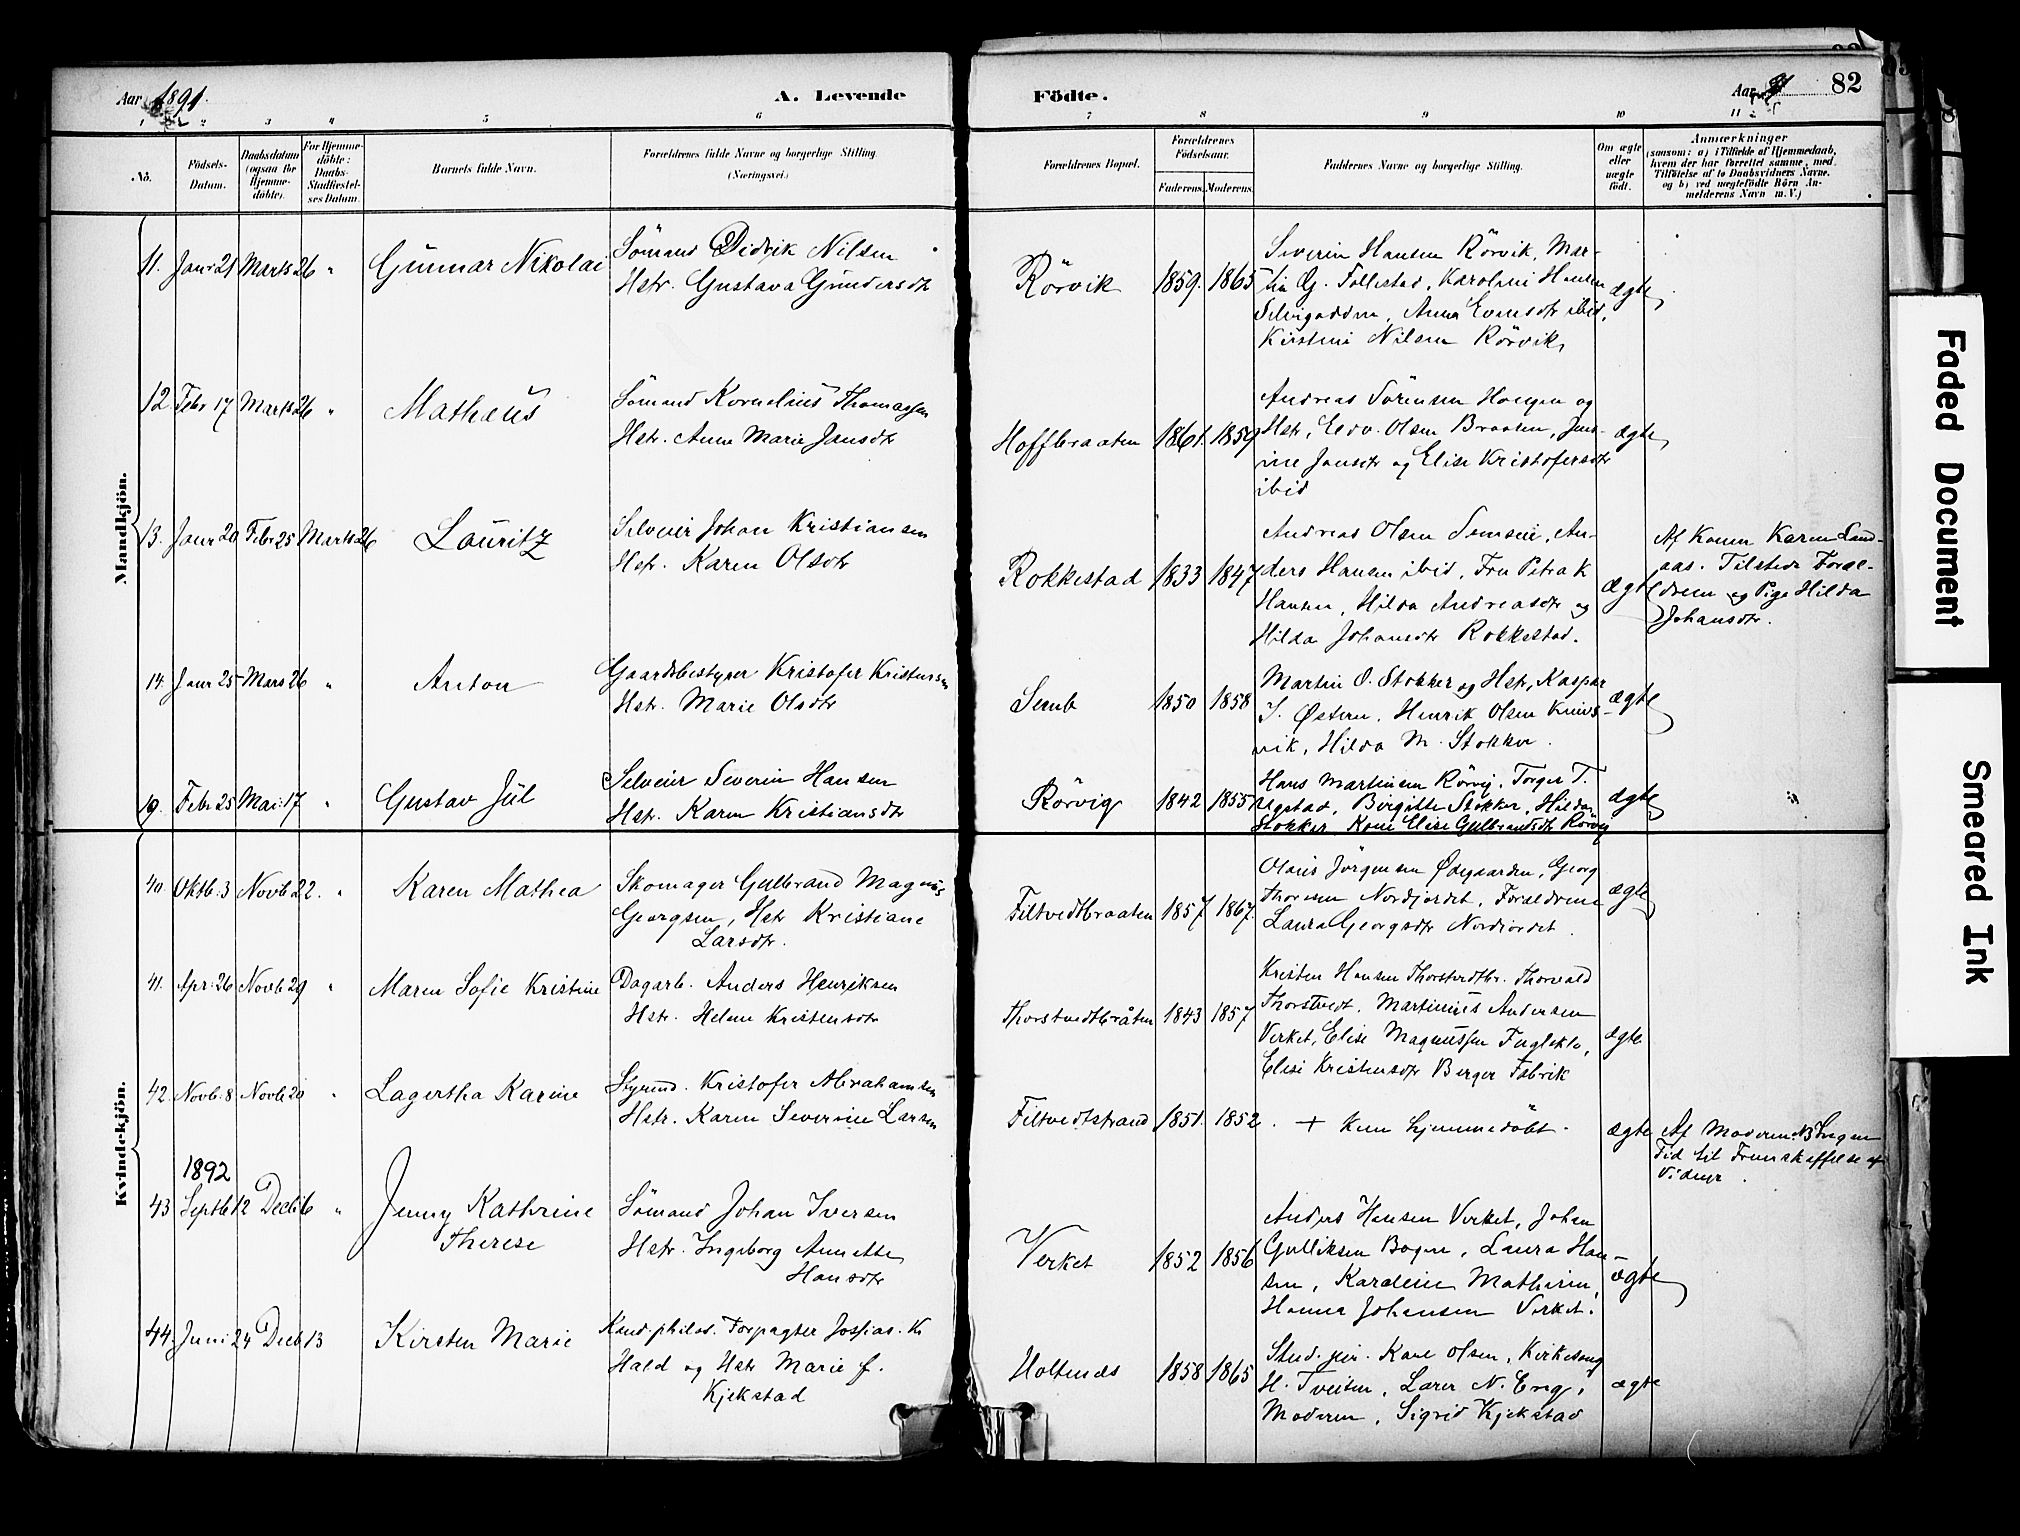 Aar 1891.
A. Levende
Födte.
Aar
82
1 2 3 4 5 6 7 8 9 10 11
No.
Födsels-Datum.
Daabsdatum (ogsaa for Hjemme-döbte).
For Hjemme-döbte: Daabs-Stadfæstel-ses Datum.
Barnets fulde Navn.
Forældrenes fulde Navne og borgerlige Stilling
(Næringsvei.)
Forældrenes Bopæl.
Forældrenes Födselsaar.
Faderens. Moderens.
Faddernes Navne og borgerlige Stilling.
Om ægte eller uægte födt.
Anmærkninger
(saasom: a) i Tilfælde af Hjemmedaab,
hvem der har forrettet samme, med
Tilföielse af to Daabsvidners Navne,
og b) ved uægtefödte Börn An-
melderens Navn m. V.)
Mandkjön.
11. Janr 21 Marts 26 " Gunnar Nikolai
Sömand Didrik Nilsen
Hstr. Gustava Gundersdtr
Rörvik 1859. 1865
Severin Hansen Rörvik, Mar-
tin G. Follestad, Karoline Hansen
Selvigodden, Anna Evensdtr ibid,
Kirstine Nilsen Rörvik,
ægte
12 Febr 17 Marts 26 " Mathæus
Sömand Kornelius Thomassen
Hstr. Anne Marie Jansdtr
Hoffbraaten 1861. 1859
Andreas Sörensen Haugen og
Hstr, Edv. Olsen Braaten, Jens-
ine Jansdtr og Elise Kristofersdtr
ibid
ægte
13. Janr 20 Febr 25 Marts 26 Lauritz
Selveier Johan Kristiansen
Hstr. Karen Olsdtr
Rokkestad 1833 1847
Andreas Olsen Semseie, An-
ders Hansen ibid, Fru Petra K
Hansen, Hilda Andreasdtr og
Hilda Johansdtr Rokkestad.
ægte
Af Konen Karen Land-
aas. Tilstede Foræl-
drene og Pige Hilda
Johansdtr.
14. Janr 25 Mars 26 " Anton
Gaardsbestyrer Kristofer Kristensen
Hstr. Marie Olsdtr
Semb 1850 1858
Martin O. Stokker og Hstr, Kaspar
J. Østern, Henrik Olsen Knivs-
vik, Hilda M. Stokker.
ægte
19. Febr 25 Mai 17 " Gustav Jül
Selveier Severin Hansen
Hstr. Karen Kristiansdtr
Rörvig 1842 1855
Hans Martinsen Rörvig, Torger T.
Ugstad, Birgitte Stokker, Hilda
Stokker Kone Elise Gulbrandsdtr Rörvig
ægte
Kvindekjön.
40. Oktb. 3 Novb 22. " Karen Mathea
Skomager Gulbrand Magnus
Georgsen, Hstr Kristiane
Larsdtr.
Filtvedtbraaten 1857. 1867.
Olaus Jörgensen Ødegaarden, Georg
Thoresen Nordjordet, Forældrene
Laura Georgsdtr Nordjordet.
ægte
41. Apr. 26 Novb 29 " Maren Sofie Kristine
Dagarb. Anders Henriksen
Hstr. Helene Kristensdtr
Thorstvedtbråten 1843 1857
Kristen Hansen Thorstvedtbr. Thorvald
Thorstvedt, Martinius Andersen
Verket, Elise Magnussen Fuglekla,
Elise Kristensdtr Berger Fabrik
ægte
42. Novb. 8 Novb 20 " Lagertha Karine
Styrmd. Kristofer Abrahamsen
Hstr. Karen Severine Larsen
Filtvedtstrand 1851. 1852.
+ Kun hjemmedöbt.
ægte
Af Moderen. NB Ingen
Tid til Fremskaffelse af
Vidner.
1892
43 Septb 12 Decb 6 " Jenny Kathrine
Therese
Sömand Johan Iversen
Hstr. Ingeborg Annette
Hansdtr
Verket 1852 1856
Anders Hansen Verket, Johan
Gulliksen Bogen, Laura Han-
sen, Karoline Mathisen,
Hanna Johansen Verket.
ægte
44. Juni 24 Decb 13 Kirsten Marie
Kand. philos. Forpagter Jossias. K
Hald og Hstr Marie f.
Kjekstad
Holtenæs 1858 1865
Stud. jur. Karl Olsen, Kirkesang
H. Tveiten, Lærer N. Eng,
Moderen, Sigrid Kjekstad
ægte
Faded Document
Smeared Ink